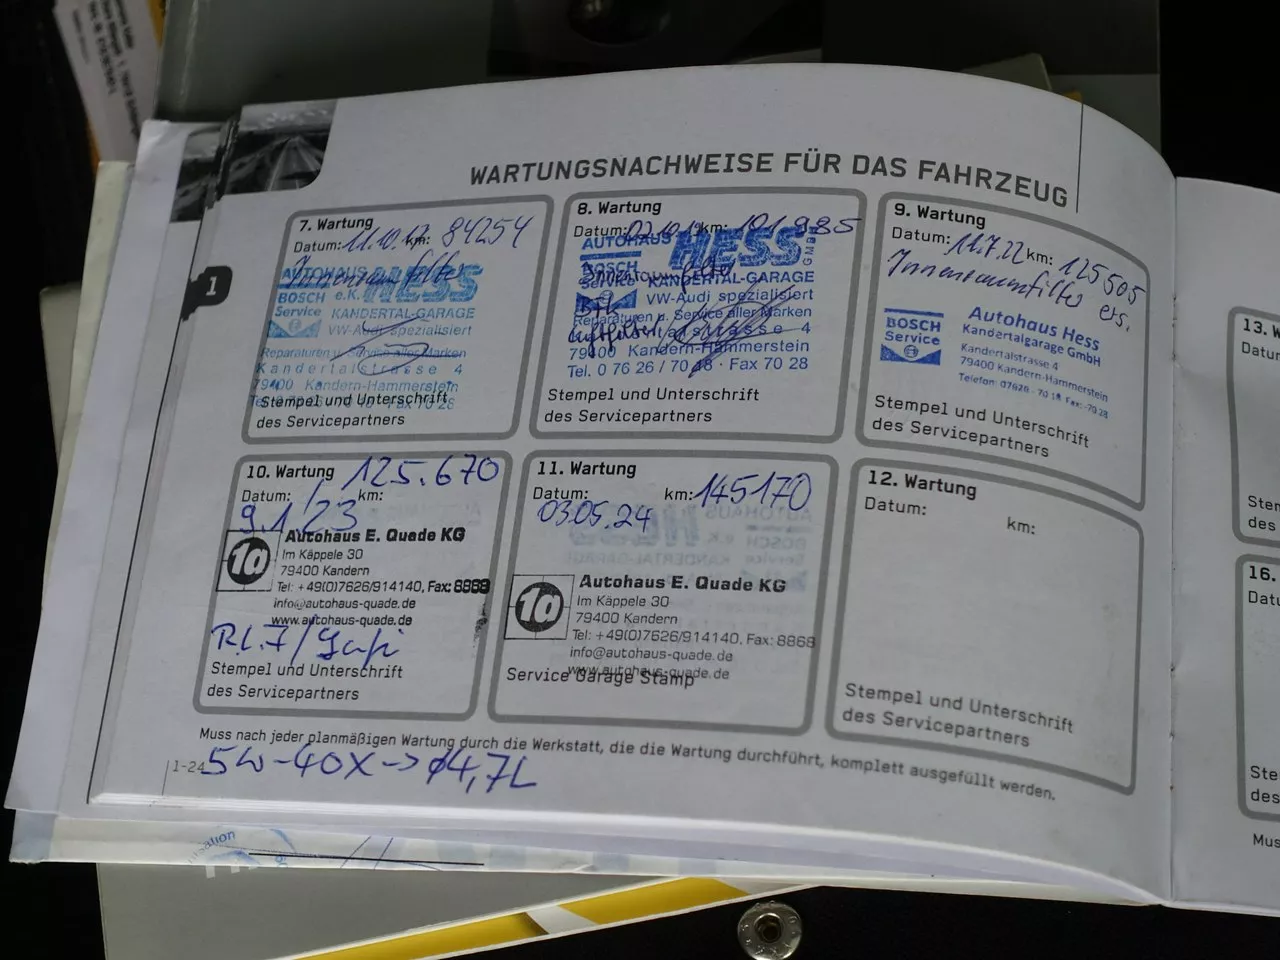 WARTUNGSNACHWEISE FÜR DAS FAHRZEUG
1
7. Wartung
Datum: 11.10.17 km: 84254
Innenraumfilter
AUTOHAUS HESS
BOSCH e.K.
Service KANDERTAL-GARAGE
VW-Audi spezialisiert
Reparaturen u. Service aller Marken
Kandertalstrasse 4
79400 Kandern-Hammerstein
Fax 70 28
Stempel und Unterschrift
des Servicepartners
8. Wartung
Datum: 02.10.19 km: 101985
AUTOHAUS HESS GMBH
Innenraumfilter
BOSCH
Service KANDERTAL-GARAGE
VW-Audi spezialisiert
Reparaturen u. Service aller Marken
Luftfilter
4
79400 Kandern-Hammerstein
Tel. 0 76 26 / 70 18 · Fax 70 28
Stempel und Unterschrift
des Servicepartners
9. Wartung
Datum: 11.7.22 km: 125505
Innenraumfilter ers.
BOSCH
Service
Autohaus Hess
Kandertalgarage GmbH
Kandertalstrasse 4
79400 Kandern-Hammerstein
Telefon: 07626 - 70 18 Fax: -70 28
Stempel und Unterschrift
des Servicepartners
10. Wartung 125.670
Datum: km:
9.1/23
1a
Autohaus E. Quade KG
Im Käppele 30
79400 Kandern
Tel: +49(0)7626/914140, Fax: 8868
info@autohaus-quade.de
www.autohaus-quade.de
Stempel und Unterschrift
des Servicepartners
11. Wartung
Datum: km: 145170
03.05.24
1a
Autohaus E. Quade KG
Im Käppele 30
79400 Kandern
Tel: +49(0)7626/914140, Fax: 8868
info@autohaus-quade.de
www.autohaus-quade.de
Service Garage Stamp
12. Wartung
Datum: km:
Stempel und Unterschrift
des Servicepartners
Muss nach jeder planmäßigen Wartung durch die Werkstatt, die die Wartung durchführt, komplett ausgefüllt werden.
1-24
5W-40X -> ø4,7L
13.
Datu
Ste
des
16.
Datu
Ste
des
Mus